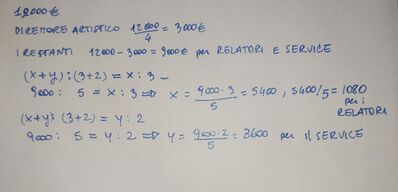 12000€
DIRETTORE ARTISTICO 12000/4 = 3000€
I RESTANTI 12000-3000 = 9000€ per RELATORI E SERVICE
(x+y):(3+2) = x:3 -
9000: 5 = x:3 => x = 9000·3/5 = 5400, 5400/5 = 1080 per i RELATORI
(x+y):(3+2) = y:2
9000: 5 = y:2 => y = 9000·2/5 = 3600 per il SERVICE